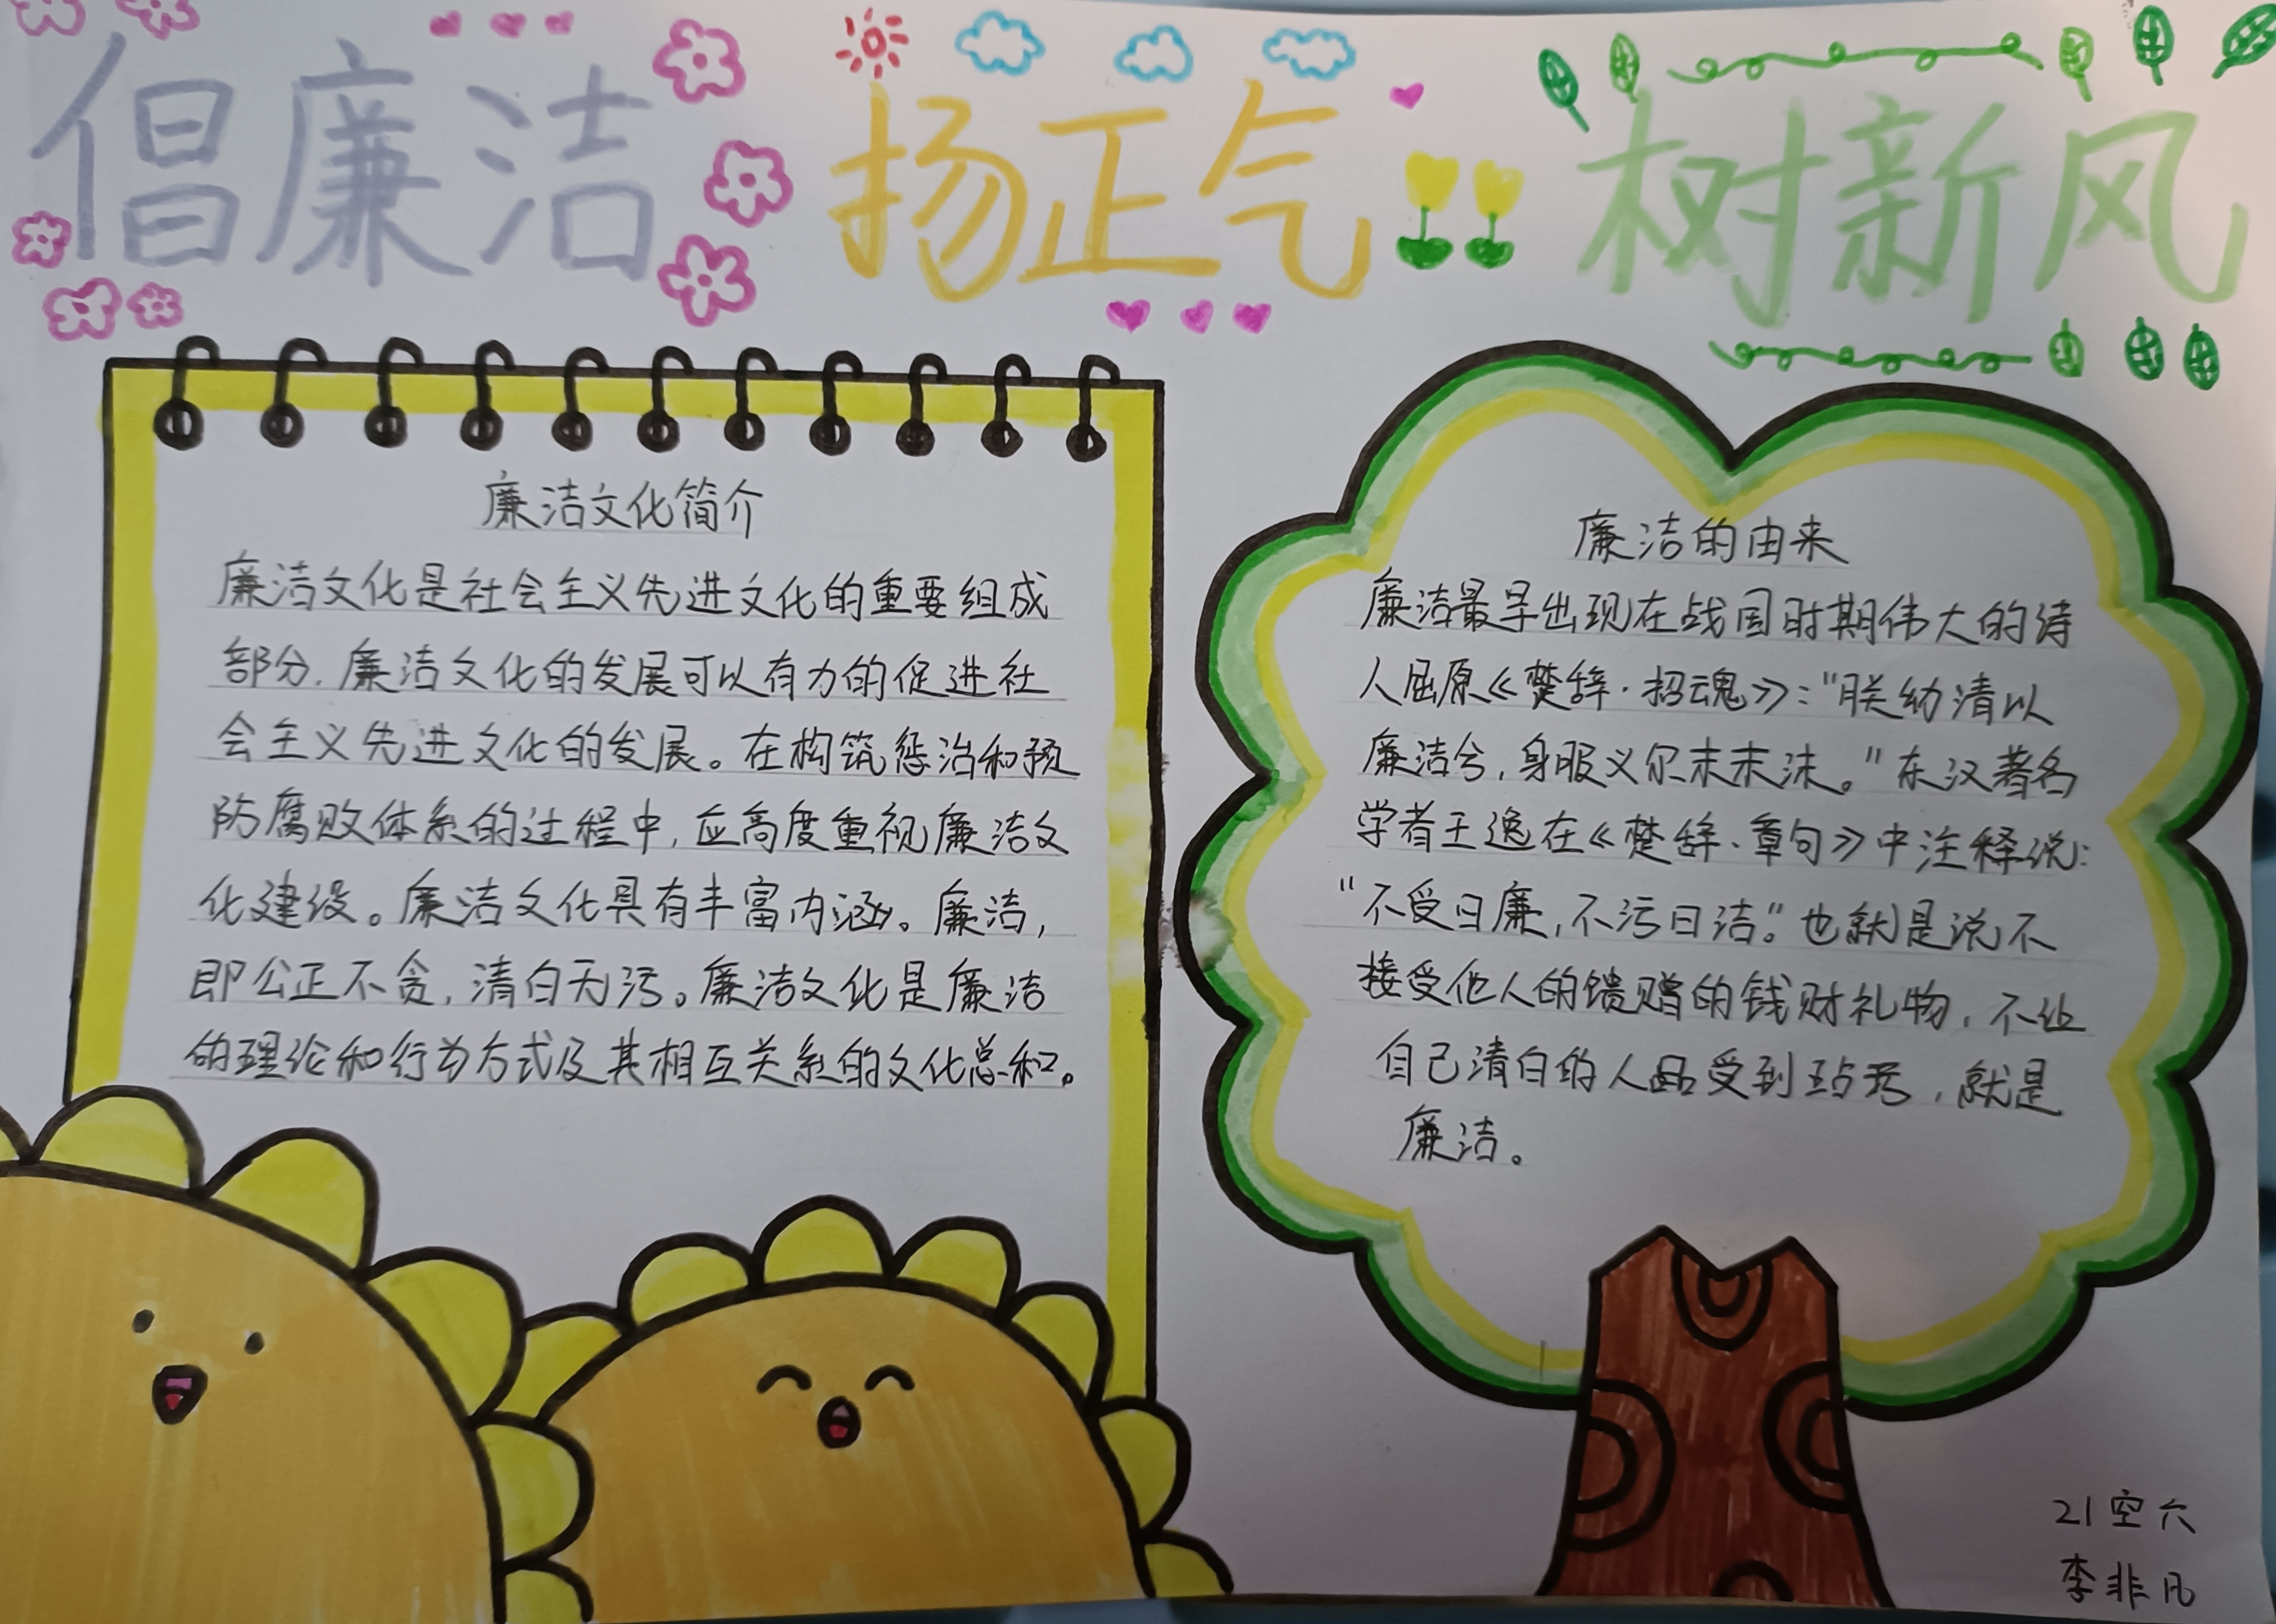 倡廉洁 扬正气 树新风
廉洁文化简介
廉洁文化是社会主义先进文化的重要组成
部分.廉洁文化的发展可以有力的促进社
会主义先进文化的发展。在构筑惩治和预
防腐败体系的过程中,应高度重视廉洁文
化建设。廉洁文化具有丰富内涵。廉洁,
即公正不贪,清白无污。廉洁文化是廉洁
的理论和行为方式及其相互关系的文化总和。
廉洁的由来
廉洁最早出现在战国时期伟大的诗
人屈原《楚辞·招魂》:"朕幼清以
廉洁兮,身服义尔未末沫。"东汉著名
学者王逸在《楚辞·章句》中注释说:
"不受曰廉,不污曰洁。"也就是说不
接受他人的馈赠的钱财礼物,不让
自己清白的人品受到玷污,就是
廉洁。
21空六
李非凡